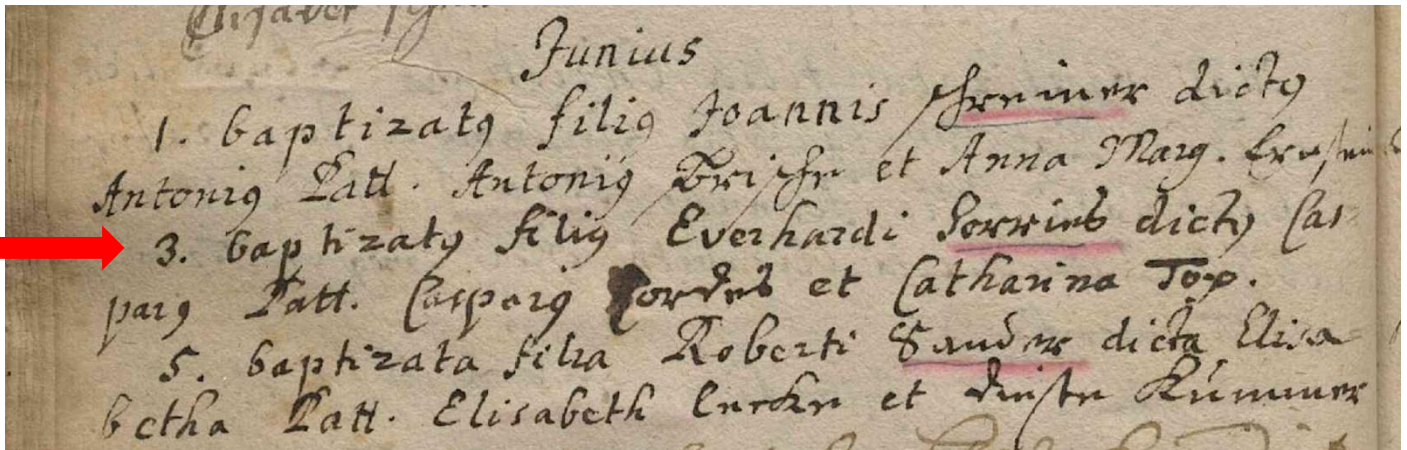 Elisabet
Junius
1. baptizatꝰ filiꝰ Joannis Schreiner dictꝰ
Antoniꝰ Patt. Antoniꝰ et Anna Marg.
3. baptizatꝰ filiꝰ Everhardi Sorries dictꝰ Cas-
parꝰ Patt. Casparꝰ Cordes et Catharina Top.
5. baptizata filia Roberti Sander dicta Elisa-
betha Patt. Elisabeth et Kummer